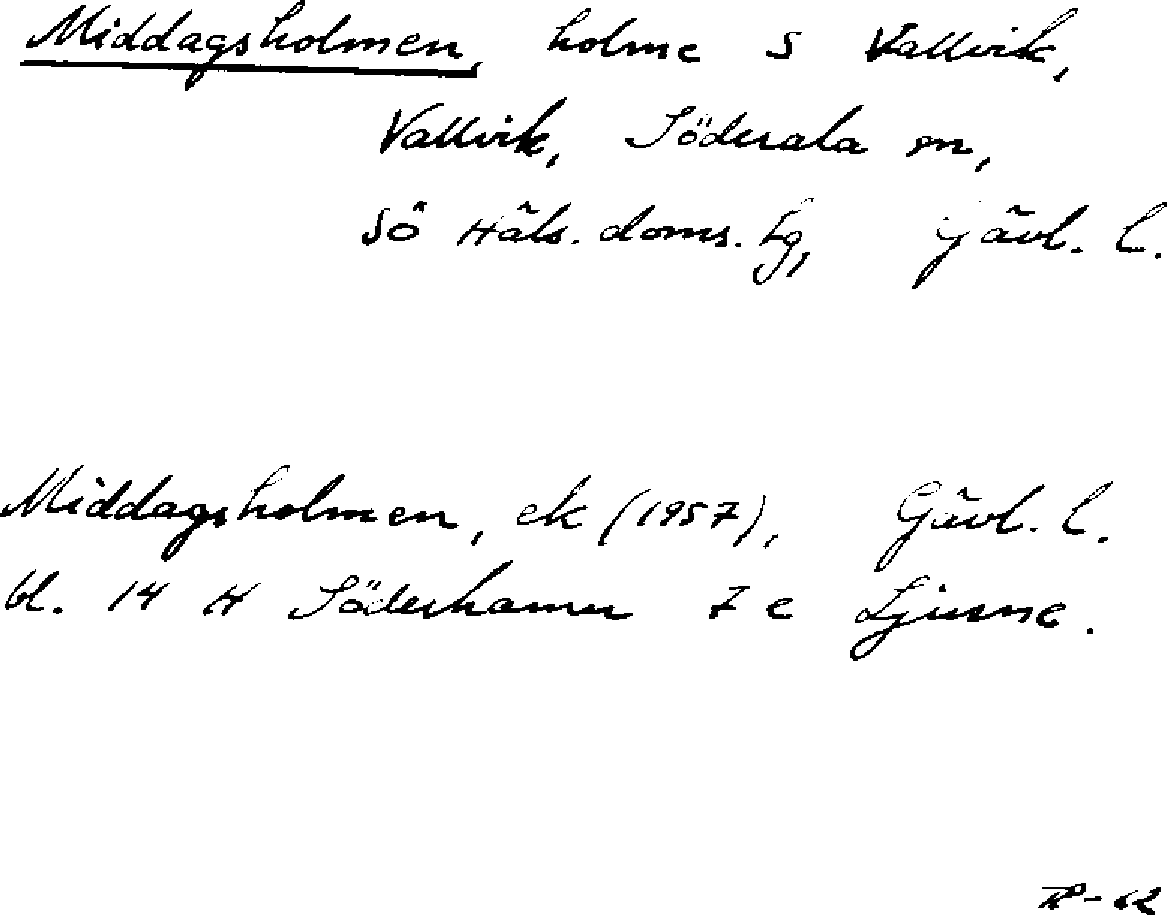 Middagsholmen, holme S Vallvik,
Vallvik, Söderala sn,
Sö Häls. doms. lg, Gävl. l.
Middagsholmen, ek (1957), Gävl. l.
bl. 14 H Söderhamn 7 e Ljusne.
-62